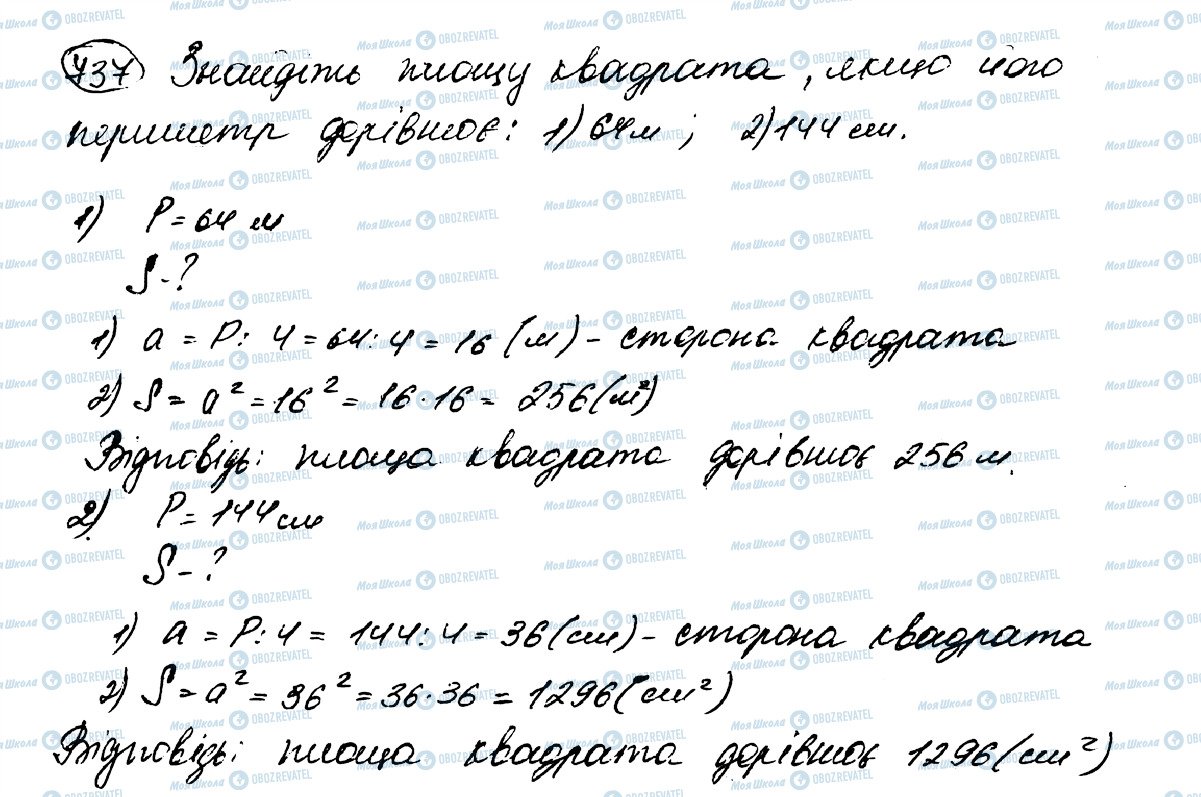 737 Знайдіть площу квадрата, якщо його
периметр дорівнює: 1) 64 м ; 2) 144 см.
1) P = 64 м
S - ?
1) a = P : 4 = 64 : 4 = 16 (м) - сторона квадрата
2) S = a² = 16² = 16 · 16 = 256 (м²)
Відповідь: площа квадрата дорівнює 256 м.
2) P = 144 см
S - ?
1) a = P : 4 = 144 : 4 = 36 (см) - сторона квадрата
2) S = a² = 36² = 36 · 36 = 1296 (см²)
Відповідь: площа квадрата дорівнює 1296 (см²)